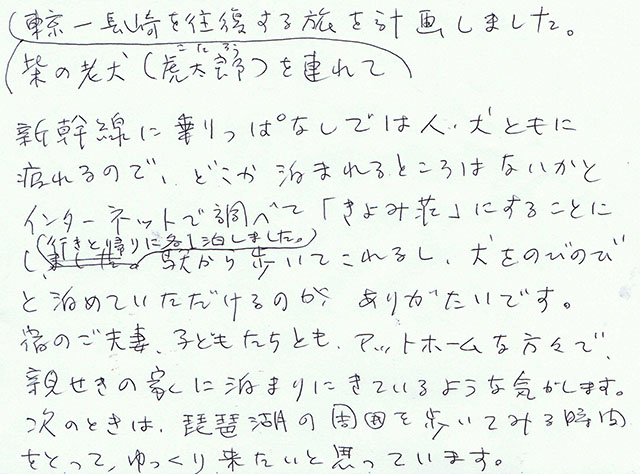 東京ー長崎を往復する旅を計画しました。
こたろう
柴の老犬(虎太郎)を連れて
新幹線に乗りっぱなしでは人・犬ともに
疲れるので、どこか泊まれるところはないかと
インターネットで調べて「きよみ荘」にすることに
(行きと帰りに各1泊しました。)
しました。駅から歩いてこれるし、犬をのびのび
と泊めていただけるのが、ありがたいです。
宿のご夫妻、子どもたちとも、アットホームな方々で、
親せきの家に泊まりにきているような気がします。
次のときは、琵琶湖の周囲を歩いてみる時間
をとって、ゆっくり来たいと思っています。